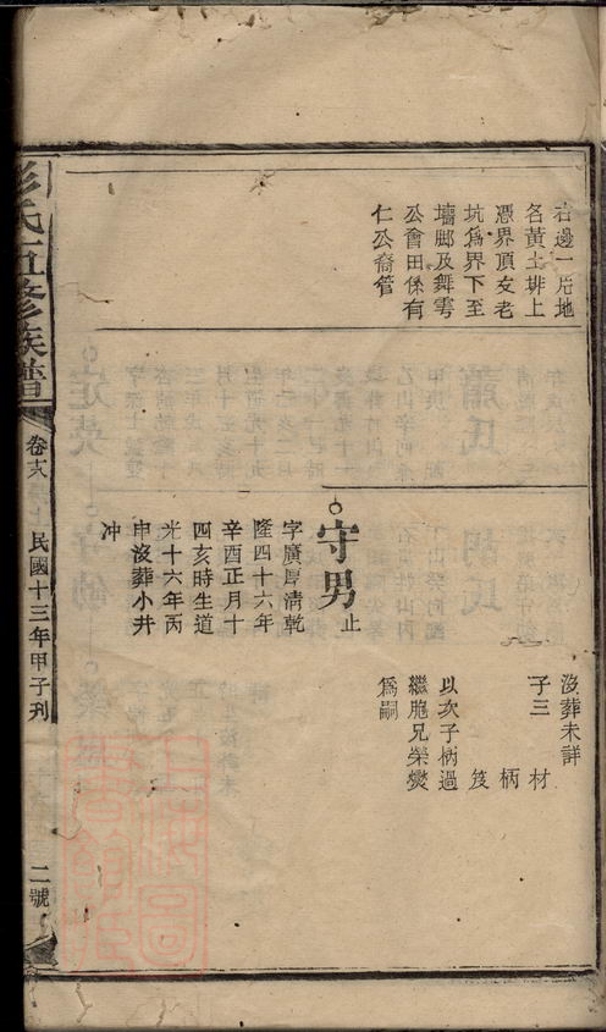 右邊一片地
名黃土排上
憑界頂友老
坑爲界下至
墻脚及舞雩
公會田係有
仁公裔管
守男止
字廣厚清乾
隆四十六年
辛酉正月十
四亥時生道
光十六年丙
申沒葬小井
冲
沒葬未詳
子三 材
柄
笈
以次子柄過
繼胞兄榮爕
爲嗣
彭氏五修族譜
卷十八
民國十三年甲子刊
二號